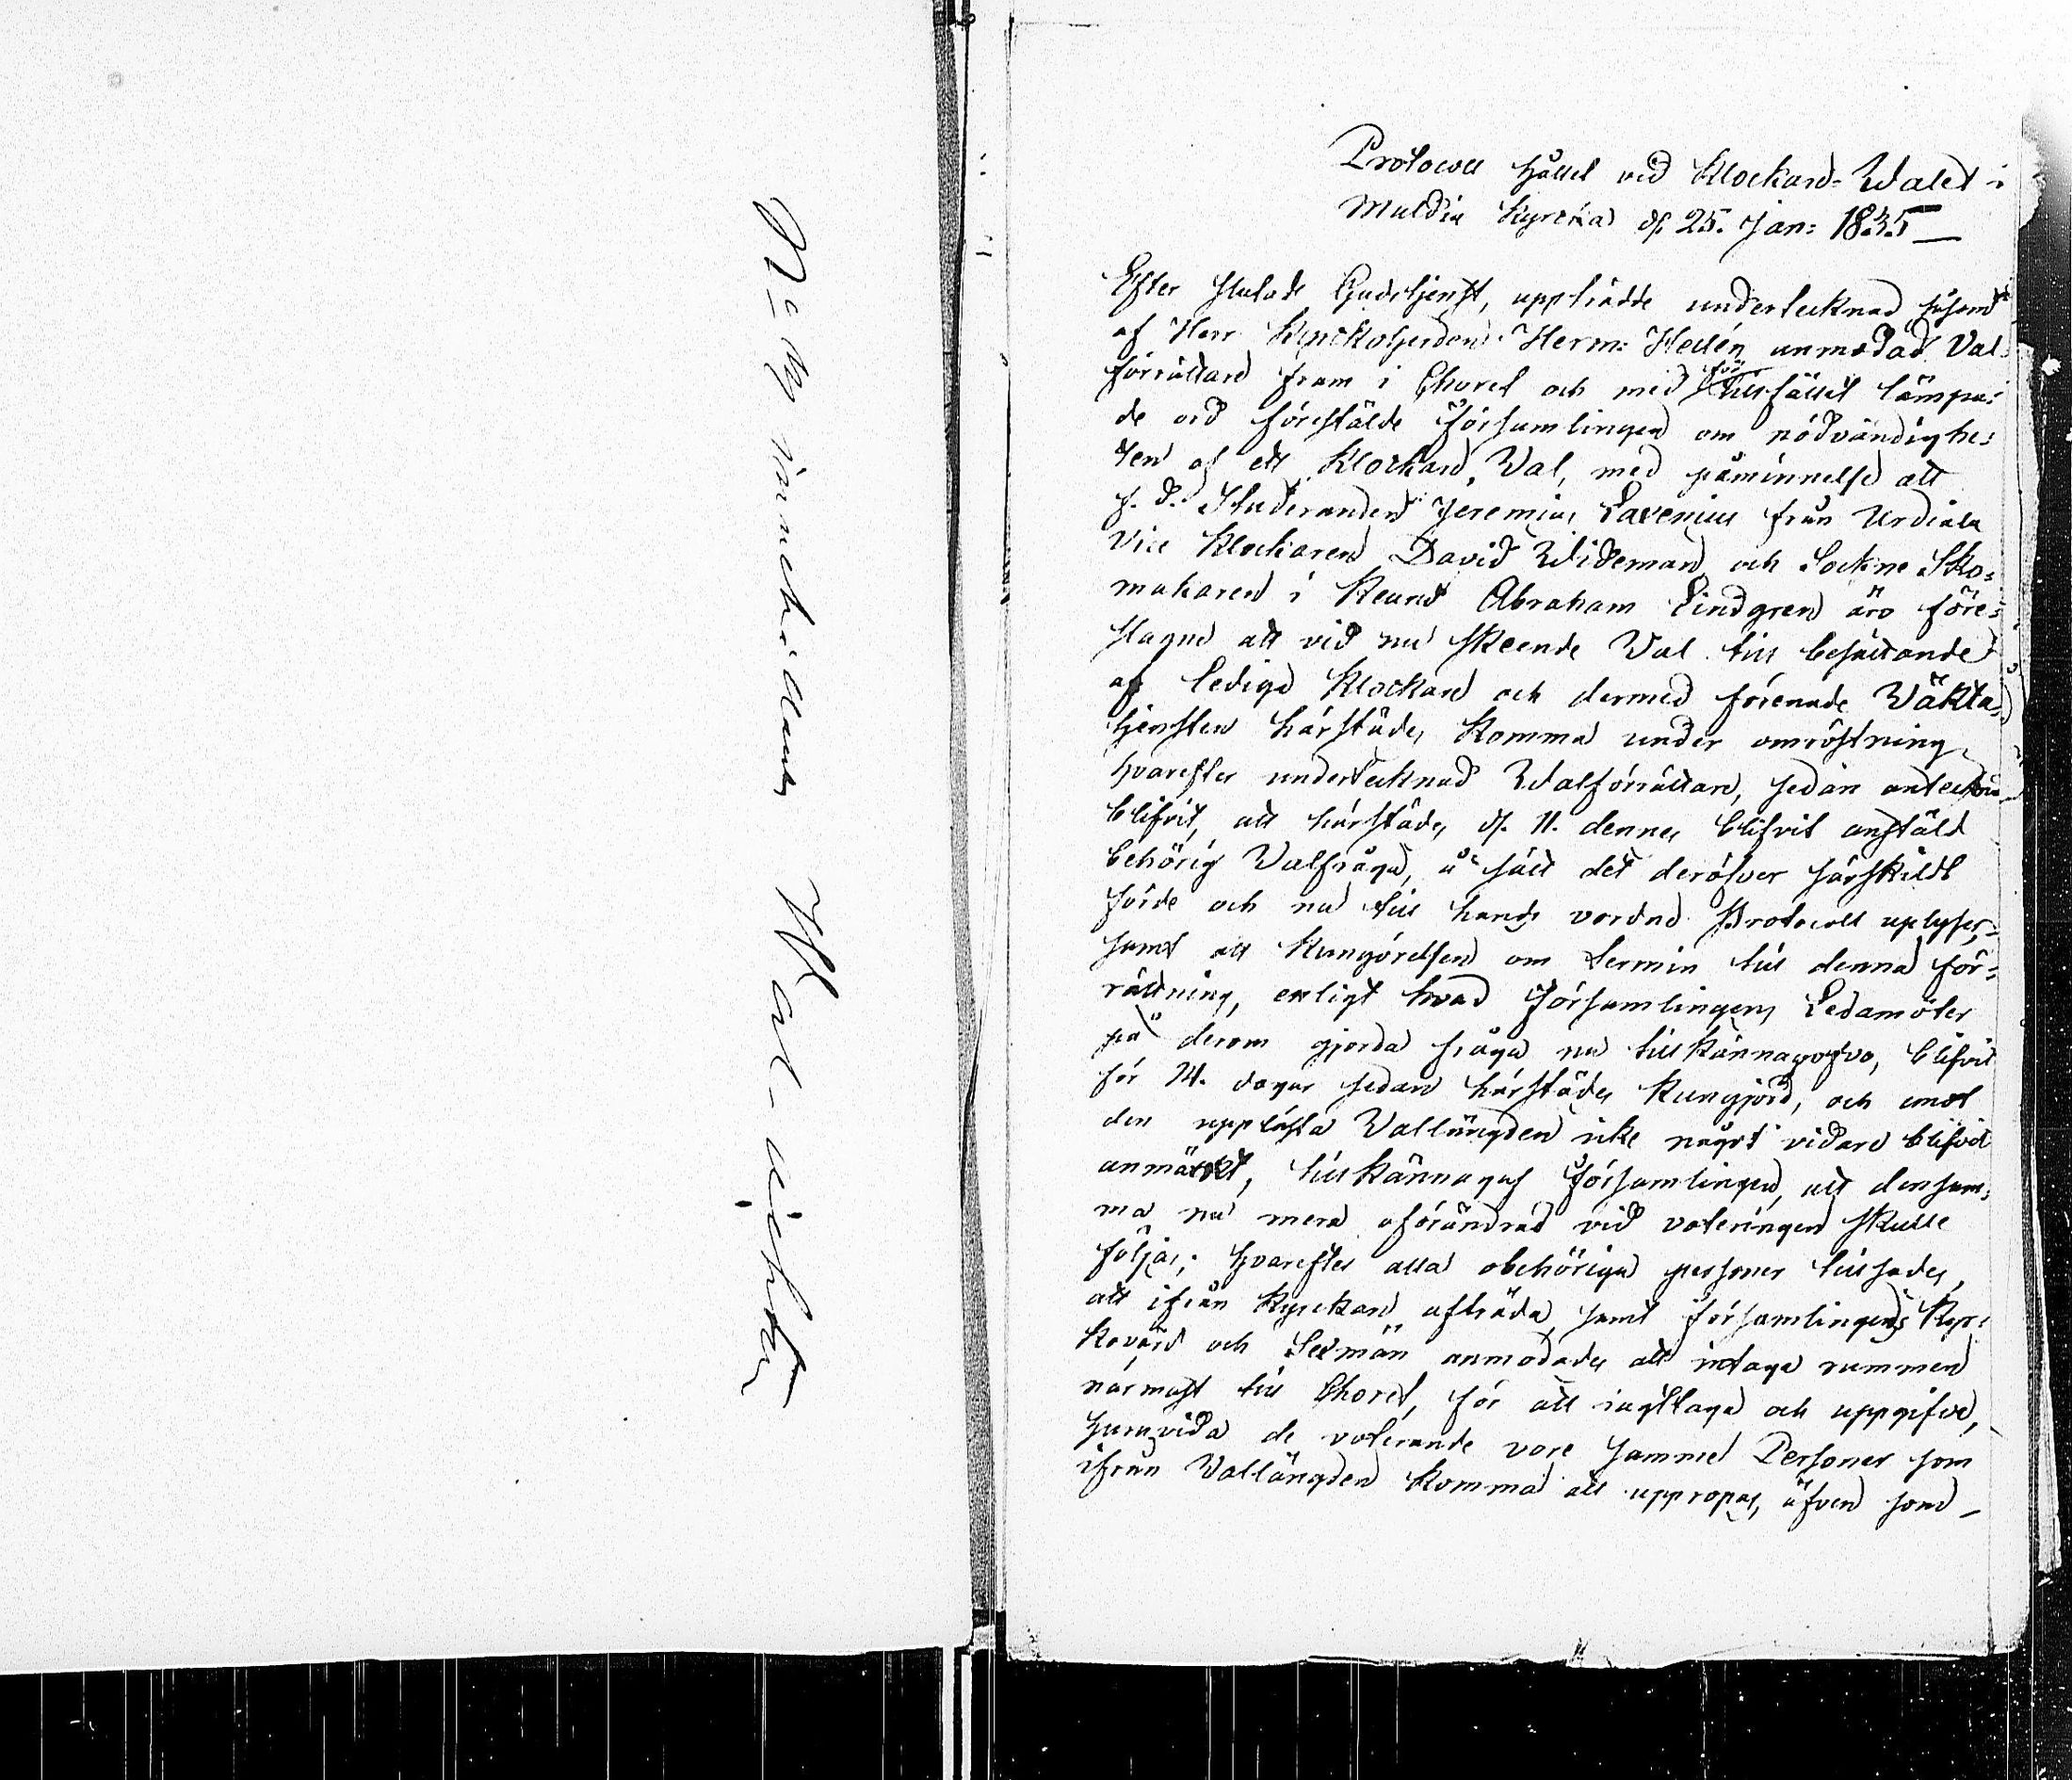 Protocoll hållet vid Klockare-Walet i
Muldia Kyrcka d. 25. Jan: 1835
Efter slutad Gudstjenst, uppträdde undertecknad såsom
af Herr Kyrckoherden Herm: Hellén anmodad Val-
förrättare fram i Choret och med för tillfället lämpa-
de ord förestälde Församlingen om nödvändighe-
ten af ett Klockare Val, med påminnelse att
f. d. Studeranden Jeremias Lavenius från Urdiala
Vice Klockaren David Wideman och Sockne Sko-
makaren i Keuru Abraham Lindgren äro före-
slagne att vid nu skeende Val till besättande
af lediga Klockare och dermed förenade Wäkta-
tjensten härstädes komma under omröstning
hvarefter undertecknad Walförrättare, sedan
blifvit, att härstädes d. 11. dennes blifvit anstäld
behörig Valfråga, å sätt det deröfver särskildt
förde och nu till hands vordne Protocoll uplyser,
samt att Kungörelsen om termin till denna för-
rättning, enligt hvad Församlingens Ledamöter
på derom gjorda fråga nu tillkännagofvo, blifvit
för 14. dagar sedan härstädes Kungjord, och emot
den upplästa Vallängden icke något vidare blifvit
anmärkt, tillkännagafs Församlingen, att densam-
ma nu mera oförändrad vid voteringen skulle
följas; hvarefter alla obehöriga personer tillsades,
att ifrån Kyrckan afträda, samt Församlingens Kyr-
kovärd och Sexmän anmodades att intaga rummen
närmast till Choret, för att iagttaga och uppgifva,
huruvida de voterande vore samme Personer som
ifrån Vallängden komma att uppropas, äfven som